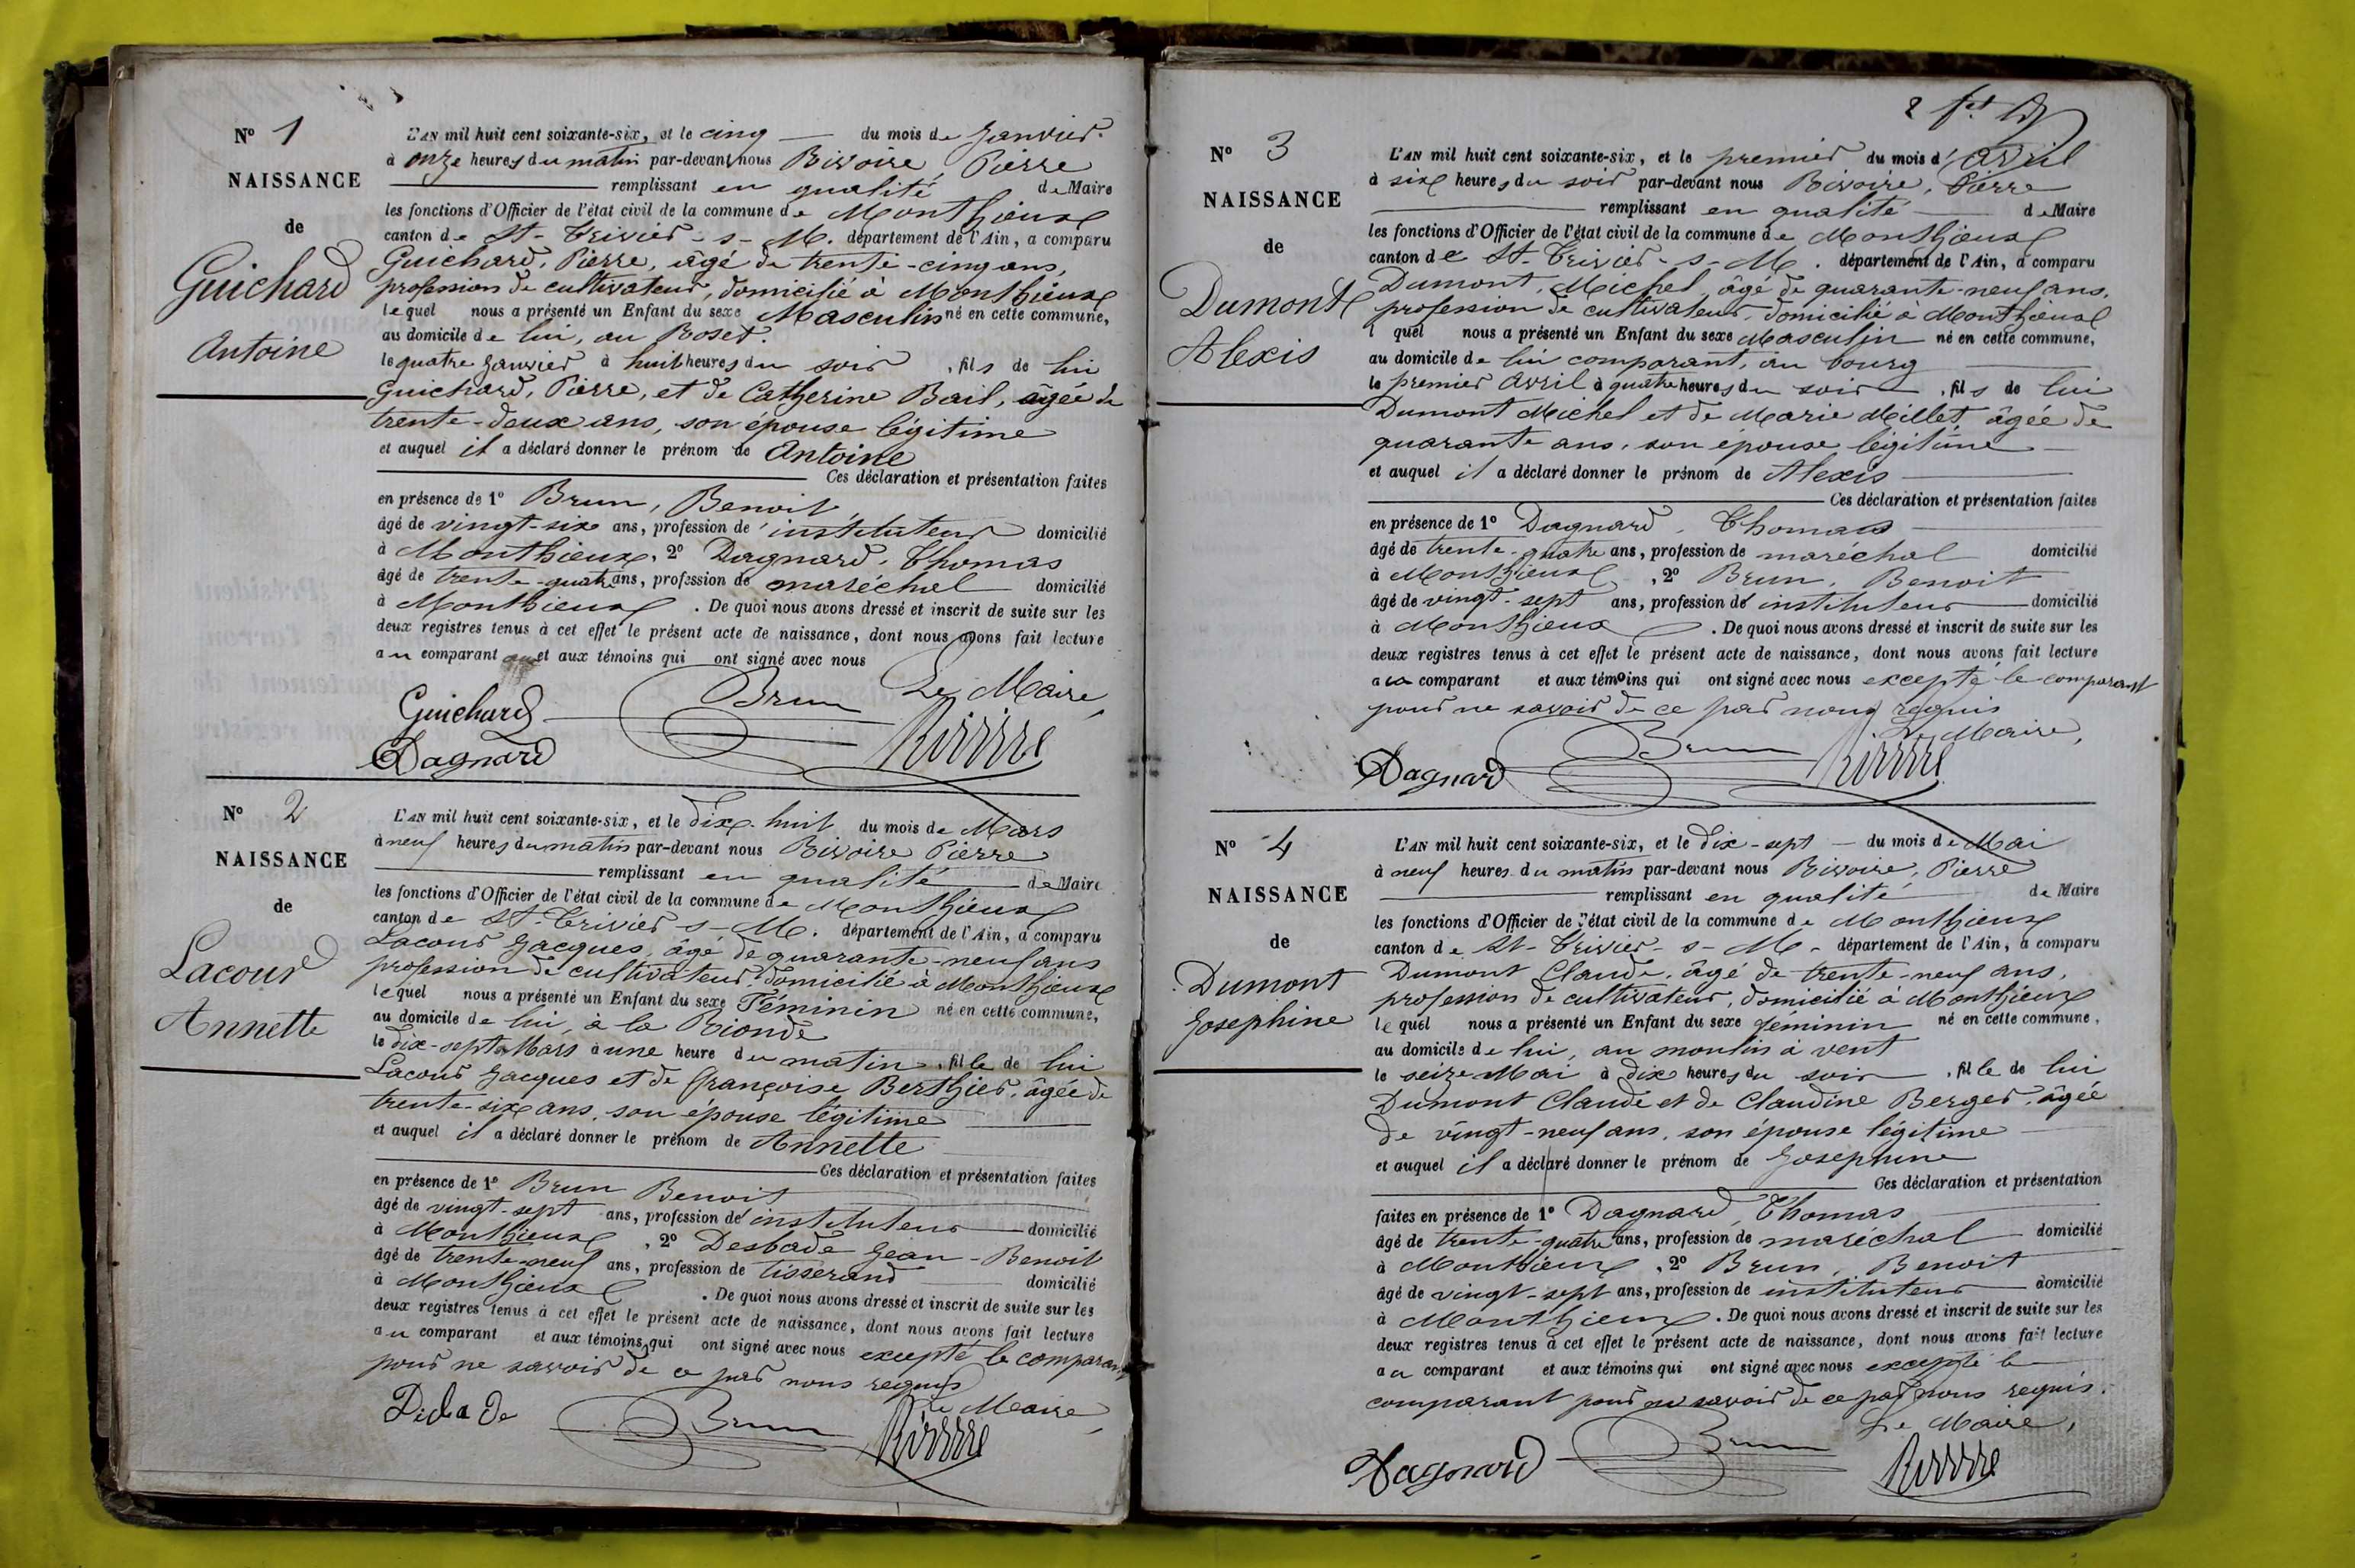 N° 1
NAISSANCE
de
Guichard
Antoine
L'AN mil huit cent soixante-six, et le cinq du mois de Janvier
à onze heures du matin par-devant nous Rivoire, Pierre
remplissant en qualité de Maire
les fonctions d'Officier de l'état civil de la commune de Monthieux
canton de St-Trivier-s-M. département de l'Ain, a comparu
Guichard, Pierre, âgé de trente-cinq ans,
profession de cultivateur, domicilié à Monthieux
lequel nous a présenté un Enfant du sexe Masculin né en cette commune,
au domicile de lui, au Boset.
le quatre Janvier à huit heures du soir, fils de lui
Guichard, Pierre, et de Catherine Bail, âgée de
trente-deux ans, son épouse légitime
et auquel il a déclaré donner le prénom de Antoine
Ces déclaration et présentation faites
en présence de 1° Brun, Benoit,
âgé de vingt-six ans, profession de instituteur domicilié
à Monthieux, 2° Dagnard, Thomas
âgé de trente-quatre ans, profession de maréchal domicilié
à Monthieux. De quoi nous avons dressé et inscrit de suite sur les
deux registres tenus à cet effet le présent acte de naissance, dont nous avons fait lecture
au comparant et aux témoins qui ont signé avec nous
Le Maire,
Guichard Brun Rivoire
Dagnard
N° 2
NAISSANCE
de
Lacour
Annette
L'AN mil huit cent soixante-six, et le dix-huit du mois de Mars
à neuf heures du matin par-devant nous Rivoire Pierre
remplissant en qualité de Maire
les fonctions d'Officier de l'état civil de la commune de Monthieux
canton de St-Trivier-s-M. département de l'Ain, a comparu
Lacour Jacques, âgé de quarante-neuf ans
profession de cultivateur, domicilié à Monthieux
lequel nous a présenté un Enfant du sexe Féminin né en cette commune,
au domicile de lui, à la Rionde
le dix-sept Mars à une heure du matin, fille de lui
Lacour Jacques et de Françoise Berthier, âgée de
trente-six ans, son épouse légitime
et auquel il a déclaré donner le prénom de Annette
Ces déclaration et présentation faites
en présence de 1° Brun Benoit
âgé de vingt-sept ans, profession de instituteur domicilié
à Monthieux, 2° Desbade Jean-Benoit
âgé de trente-neuf ans, profession de tisserand domicilié
à Monthieux. De quoi nous avons dressé et inscrit de suite sur les
deux registres tenus à cet effet le présent acte de naissance, dont nous avons fait lecture
au comparant et aux témoins qui ont signé avec nous excepté le comparant
pour ne savoir de ce par nous requis
Le Maire,
Brun Rivoire
N° 3
NAISSANCE
de
Dumont
Alexis
L'AN mil huit cent soixante-six, et le premier du mois d'avril
à six heures du soir par-devant nous Rivoire, Pierre
remplissant en qualité de Maire
les fonctions d'Officier de l'état civil de la commune de Monthieux
canton de St-Trivier-s-M. département de l'Ain, a comparu
Dumont, Michel, âgé de quarante-neuf ans,
profession de cultivateur, domicilié à Monthieux
lequel nous a présenté un Enfant du sexe Masculin né en cette commune,
au domicile de lui comparant, au bourg
le premier avril à quatre heures du soir, fils de lui
Dumont Michel et de Marie Millet, âgée de
quarante ans, son épouse légitime
et auquel il a déclaré donner le prénom de Alexis
Ces déclaration et présentation faites
en présence de 1° Dagnard, Thomas
âgé de trente-quatre ans, profession de maréchal domicilié
à Monthieux, 2° Brun, Benoit
âgé de vingt-sept ans, profession de instituteur domicilié
à Monthieux. De quoi nous avons dressé et inscrit de suite sur les
deux registres tenus à cet effet le présent acte de naissance, dont nous avons fait lecture
au comparant et aux témoins qui ont signé avec nous excepté le comparant
pour ne savoir de ce par nous requis
Le Maire,
Dagnard Brun Rivoire
N° 4
NAISSANCE
de
Dumont
Josephine
L'AN mil huit cent soixante-six, et le dix-sept du mois de Mai
à neuf heures du matin par-devant nous Rivoire, Pierre
remplissant en qualité de Maire
les fonctions d'Officier de l'état civil de la commune de Monthieux
canton de St-Trivier-s-M. département de l'Ain, a comparu
Dumont Claude, âgé de trente-neuf ans,
profession de cultivateur, domicilié à Monthieux
lequel nous a présenté un Enfant du sexe féminin né en cette commune,
au domicile de lui, au moulin à vent
le seize Mai à dix heures du soir, fille de lui
Dumont Claude et de Claudine Berger, âgée
de vingt-neuf ans, son épouse légitime
et auquel il a déclaré donner le prénom de Josephine
Ces déclaration et présentation
faites en présence de 1° Dagnard, Thomas
âgé de trente-quatre ans, profession de maréchal domicilié
à Monthieux, 2° Brun, Benoit
âgé de vingt-sept ans, profession de instituteur domicilié
à Monthieux. De quoi nous avons dressé et inscrit de suite sur les
deux registres tenus à cet effet le présent acte de naissance, dont nous avons fait lecture
au comparant et aux témoins qui ont signé avec nous excepté le
comparant pour ne savoir de ce par nous requis.
Le Maire,
Dagnard Brun Rivoire